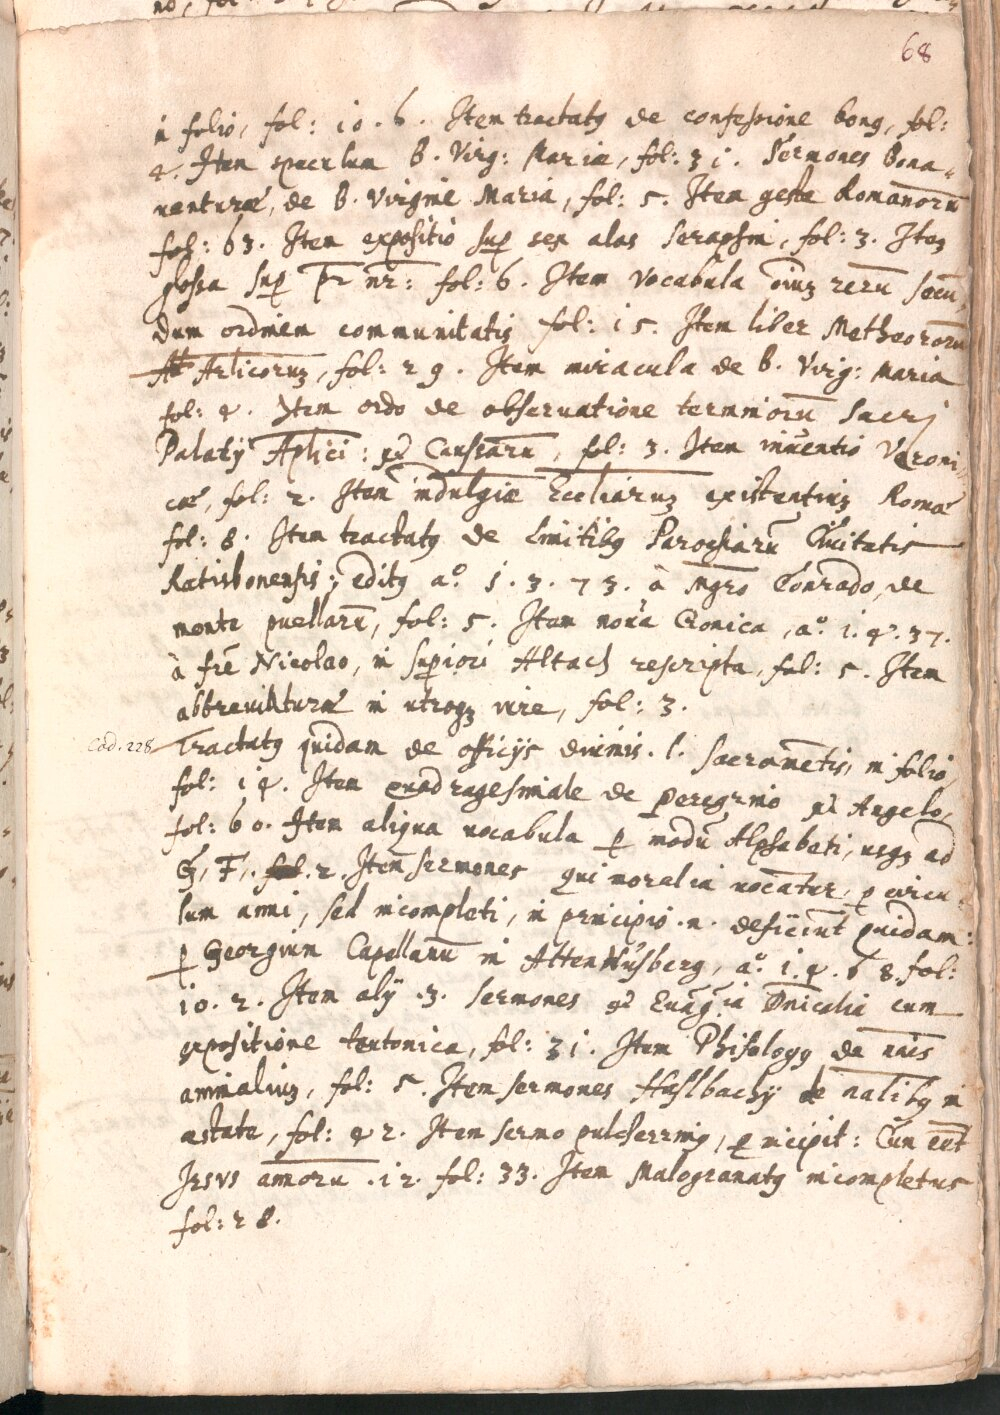 68
in folio, fol: 10.6. Item tractatꝫ de confessione bonꝫ, fol:
4. Item speculum B. Virg: Mariæ, fol: 31. Sermones Bona-
uenturæ, de B. Virgine Maria, fol: 5. Item gesta Romanorū
fol: 63. Item expositio suꝑ sex alas Seraphin, fol: 3. Iteꝫ
glossa suꝑ pr̄ nr̄: fol: 6. Item vocabula oīuꝫ rerū secū,
dum ordinem communitatis fol: 15. Item liber Metheororū
Arlicoruꝫ, fol: 29. Item miracula de B. Virg: Maria
fol: 4. Item ordo de obseruatione terminorū Sacrj
Palatij Ap̄lici: Caussarū, fol: 3. Item inuentio Veroni,
cæ, fol: 2. Item indulgiæ Eccl̄iaruꝫ existentiuꝫ Romæ
fol: 8. Item tractatꝫ de limitibꝫ Parochiarū Ciuitatis
Ratisbonensis; editꝫ aº. 1.3.73. à Mgr̄o Conrado, de
monte puellarū, fol: 5. Item noua Cronica, aº. 1.4.37.
à fr̄e Nicolao, in suꝑiori Altach rescripta, fol: 5. Item
abbreuiaturæ in utroqꝫ iure, fol: 3.
Cod. 228 Tractatꝫ quidam de officijs diuinis. l. Sacramētis, in folio,
fol: 14. Item quadragesimale de peregrino Angelo,
fol: 60. Item aliqua uocabula ꝑ modū Alphabeti, usqꝫ ad
F, . 2. Item sermones qui moralia uocātur, ꝑ circu,
lum anni, sed incompleti, in principio .n. deficiūt quidam:
ꝑ Georgium Capellanū in Attenhusberg, aº. 1.4.68. fol:
10.2. Item alij .3. sermones Euāgīa Dn̄icalia cum
expositione teutonica, fol: 31. Item Phisologꝫ de nāis
animaliuꝫ, fol: 5. Item sermones Haslbachij de nalibꝫ in
æstate, fol: 42. Item sermo pulcherrimꝫ, ꝑ incipit: Cum eēt
Jesus annorū .12. fol: 33. Item Malogranatꝫ incompletus
fol: 28.